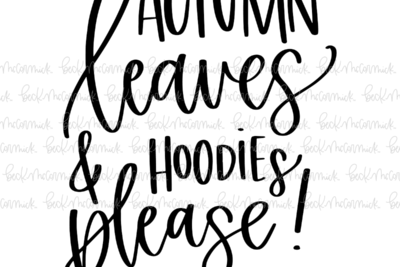 AUTUMN
leaves
& HOODIES
please!